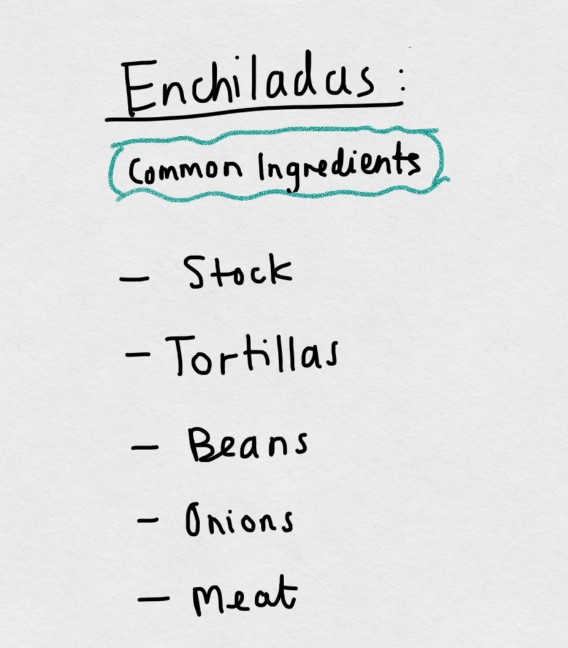 Enchiladas:
Common Ingredients
- Stock
- Tortillas
- Beans
- Onions
- Meat